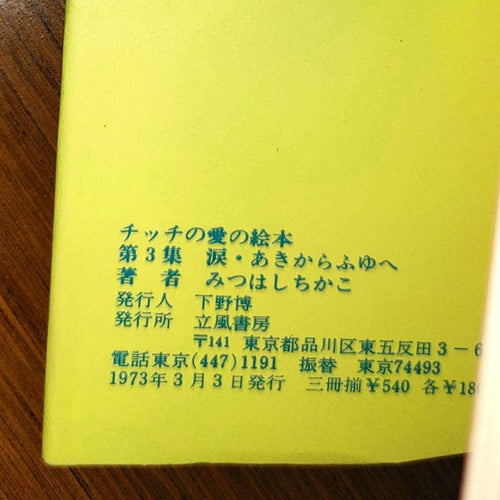 チッチの愛の絵本
第3集 涙・あきからふゆへ
著者 みつはしちかこ
発行人 下野博
発行所 立風書房
〒141 東京都品川区東五反田3-6
電話東京(447)1191 振替 東京74493
1973年3月3日発行 三冊揃¥540 各¥180